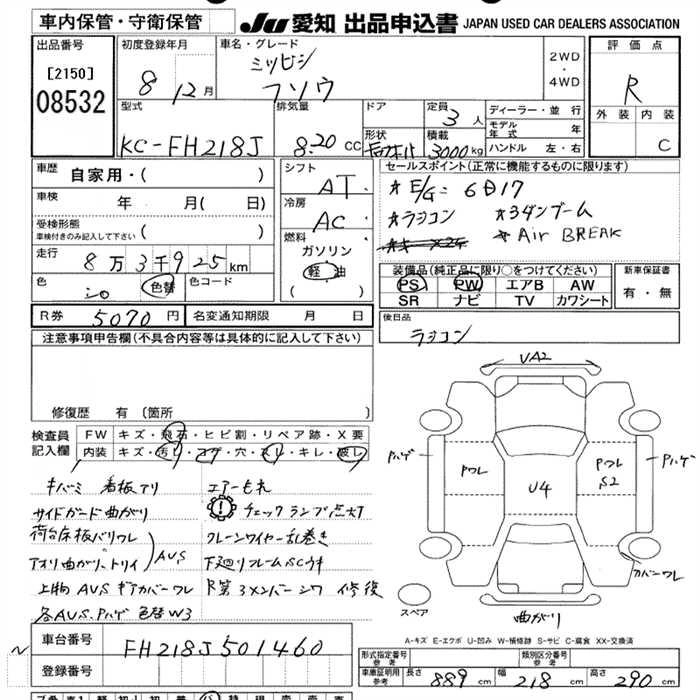 車内保管・守衛保管
JU 愛知 出品申込書 JAPAN USED CAR DEALERS ASSOCIATION
出品番号
[2150]
08532
初度登録年月
8 12月
車名・グレード
ミツビシ
フソウ
2WD
・
4WD
評価点
R
外装 内装
C
型式
KC-FH218J
排気量
8.20 CC
ドア
形状
定員
3人
積載
3000kg
ディーラー・並行
モデル年式 年
ハンドル 左・右
車歴
自家用・( )
車検
年 月( 日)
受検形態
車検付きのみ記入して下さい ( )
走行
8万3千925km
色
シロ 色替
色コード
シフト
AT
冷房
AC
燃料
ガソリン
軽油
( )
セールスポイント(正常に機能するものに限ります)
☆E/G=6D17
☆ラジコン ☆3ダンブーム
☆Air BREAK
装備品(純正品に限り○をつけてください)
PS PW エアB AW
SR ナビ TV カワシート
新車保証書
有・無
R券 5070円
名変通知期限 月 日
後日品
ラジコン
注意事項申告欄(不具合内容等は具体的に記入して下さい)
修復歴 有 〔箇所 〕
検査員記入欄
FW キズ・飛石・ヒビ割・リペア跡・X要
内装 キズ・汚レ・コゲ・穴・スレ・キレ・破レ
キバミ 看板アリ
サイドガード曲がり
荷台床板バリワレ
アオリ曲がり、トイ
AUS
上物AUS ギアカバーワレ
各AUS、Pハゲ 色替W3
エアーもれ
チェックランプ点灯
クレーンワイヤー乱巻き
下廻りフレームSCウキ
R第3メンバーシワ 修復
VA2
Pハゲ
Pハゲ
Pワレ
Pワレ
S2
U4
カバーワレ
スペア
曲がり
A-キズ E-エクボ U-凹み W-補修跡 S-サビ C-腐食 XX-交換済
車台番号
FH218J501460
登録番号
形式指定番号
参考
類別区分番号
参考
車庫証明用
参考
長さ 889cm
幅 218cm
高さ 290cm